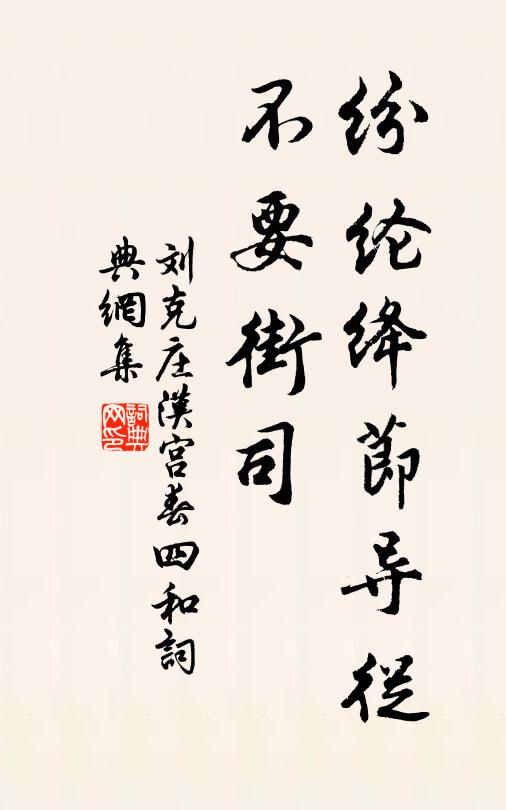 纷纶绛節导從
不要街司
刘克庄漢宫春四和詞
典網集
詞典网印